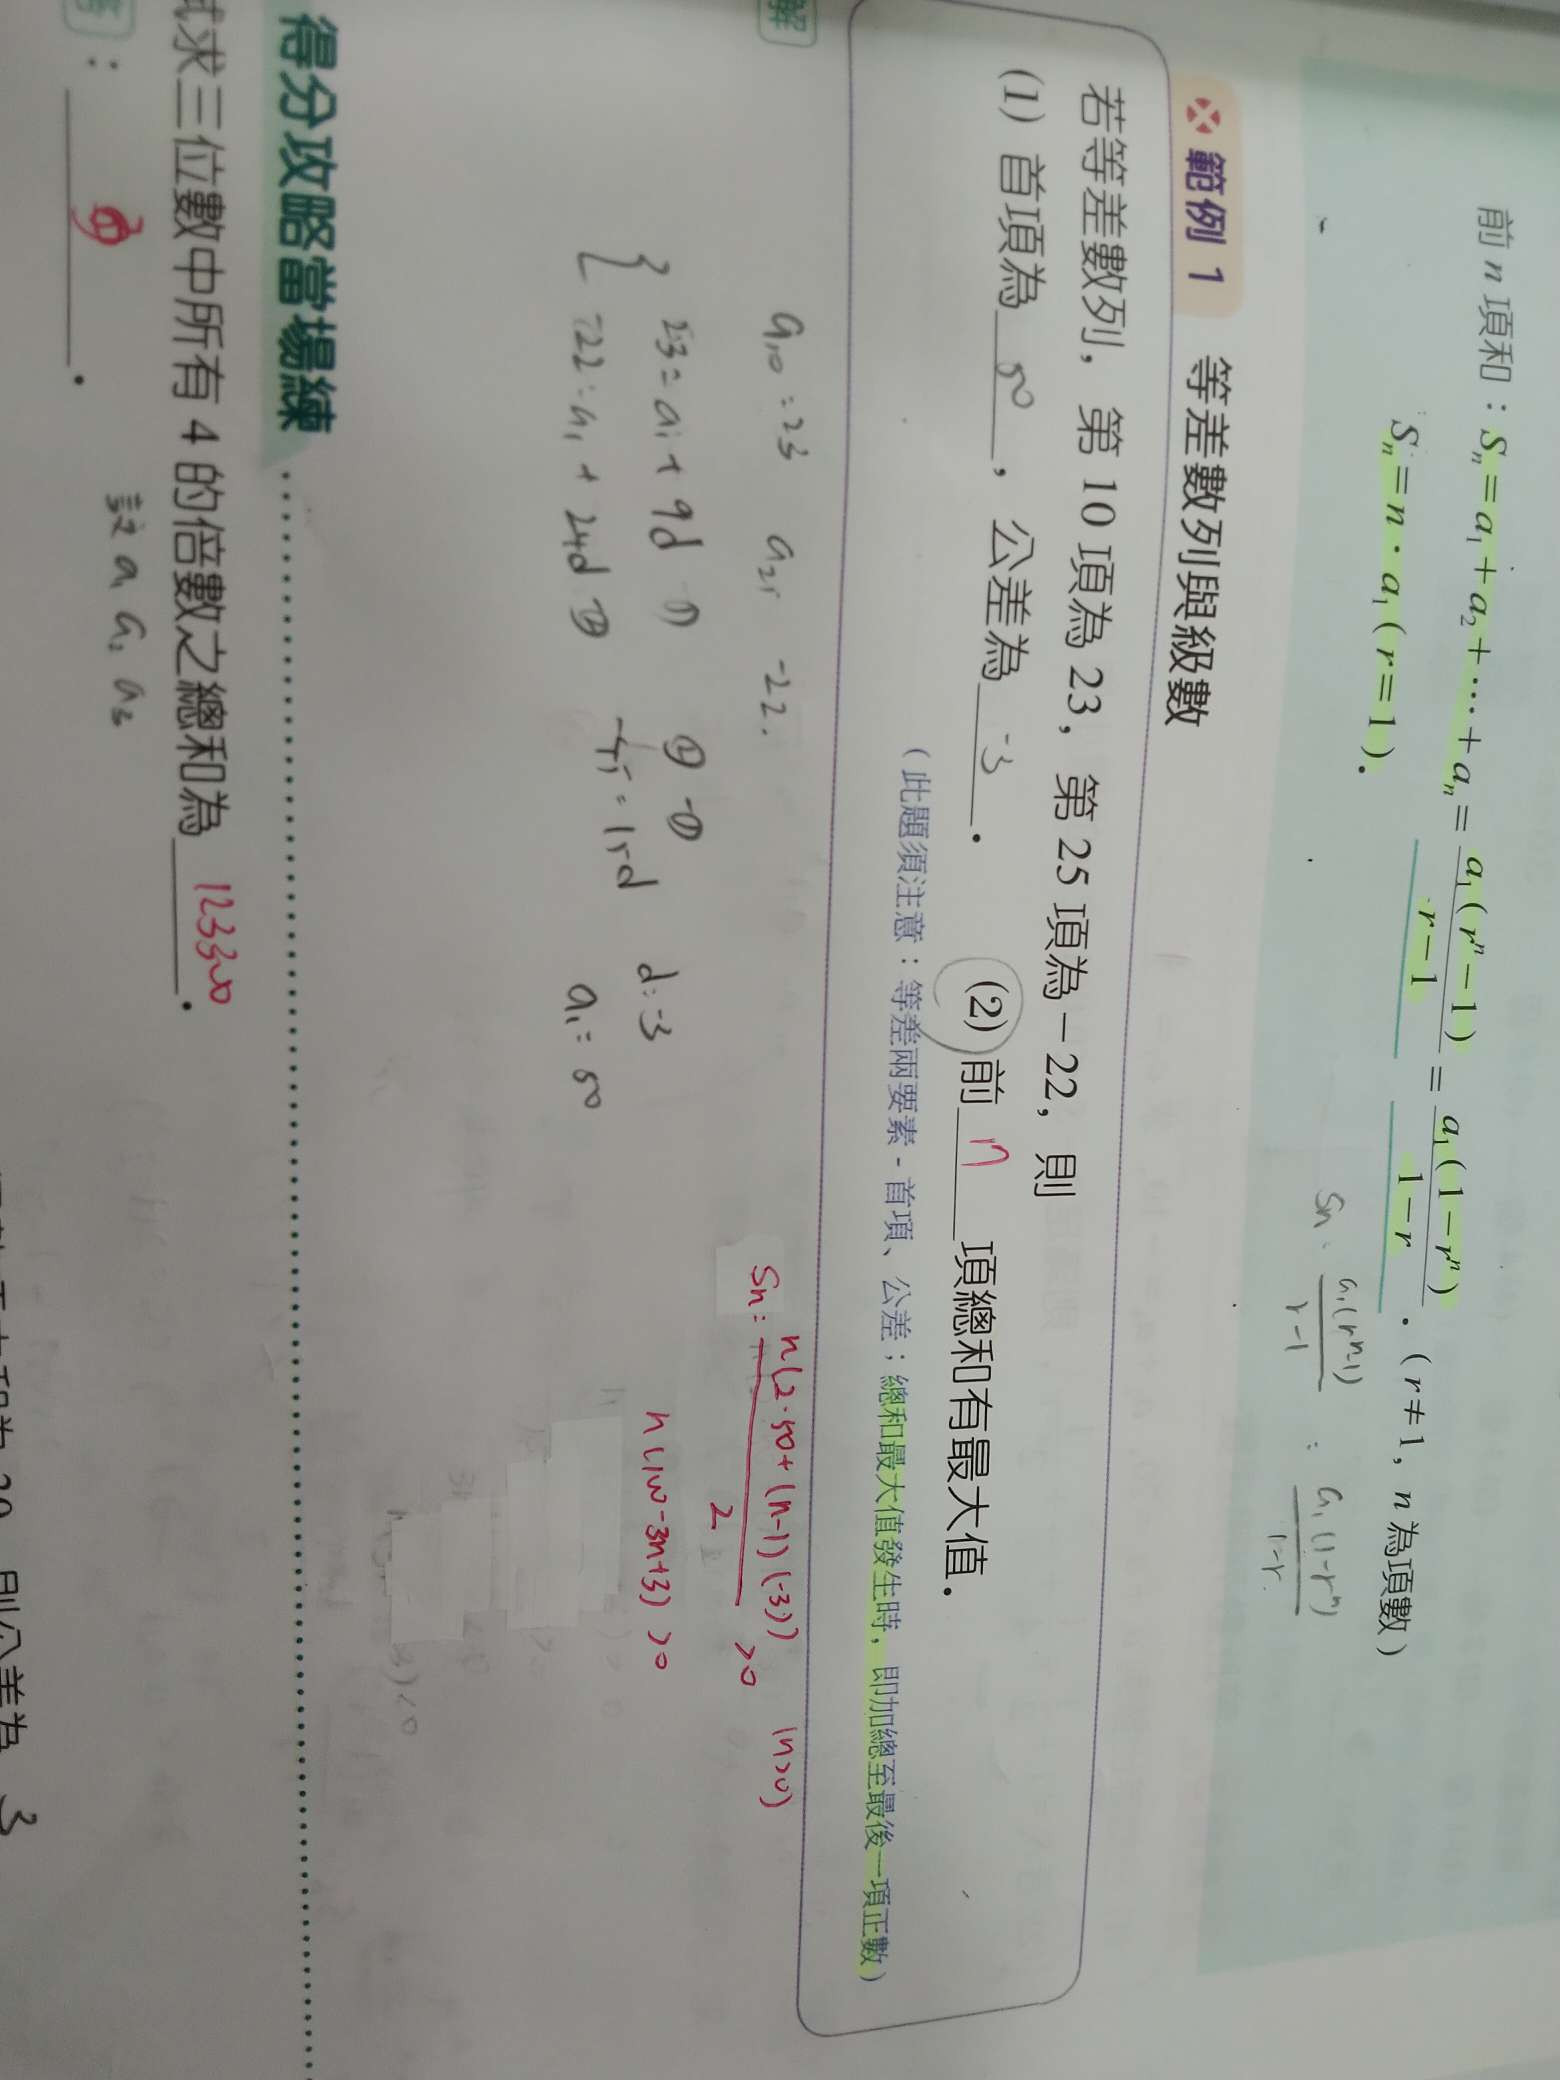 前 n 項和：Sₙ＝a₁＋a₂＋…＋aₙ＝a₁(rⁿ－1)/r－1＝a₁(1－rⁿ)/1－r．(r≠1，n 為項數)
Sₙ＝n·a₁(r＝1)．
Sn = a₁(rⁿ-1)/r-1 = a₁(1-rⁿ)/1-r
範例 1 等差數列與級數
若等差數列，第 10 項為 23，第 25 項為－22，則
(1) 首項為 50，公差為 -3． (2) 前 17 項總和有最大值．
(此題須注意：等差兩要素-首項、公差；總和最大值發生時，即加總至最後一項正數)
解
a₁₀=23 a₂₅ -22.
Sn= n(2·50+(n-1)(-3))/2 >0 (n>0)
{ 23=a₁+9d ①
-22=a₁+24d ②
②-①
-45=15d
d=-3
a₁=50
n(100-3n+3)>0
得分攻略當場練
試求三位數中所有 4 的倍數之總和為 123300．
設 a₁ a₂ a₃
答：